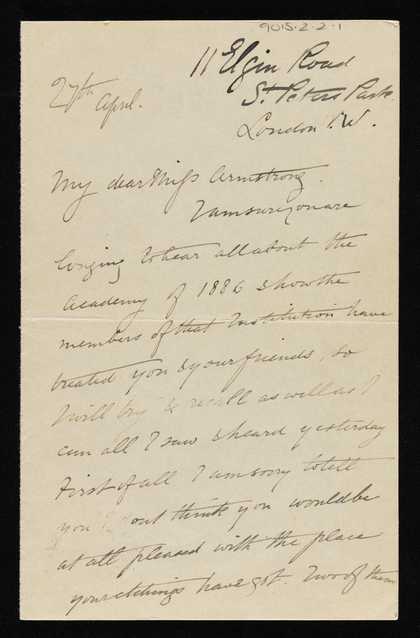 9015-2-2-1
11 Elgin Road
St. Peters Park
London W.
27th April.
My dear Miss Armstrong.
I am sure you are
longing to hear all about the
Academy of 1886 & how the
members of that Institution have
treated you & your friends, so
I will try & recall as well as I
can all I saw & heard yesterday
First of all I am sorry to tell
you I dont think you would be
at all pleased with the place
your etchings have got. Two of them